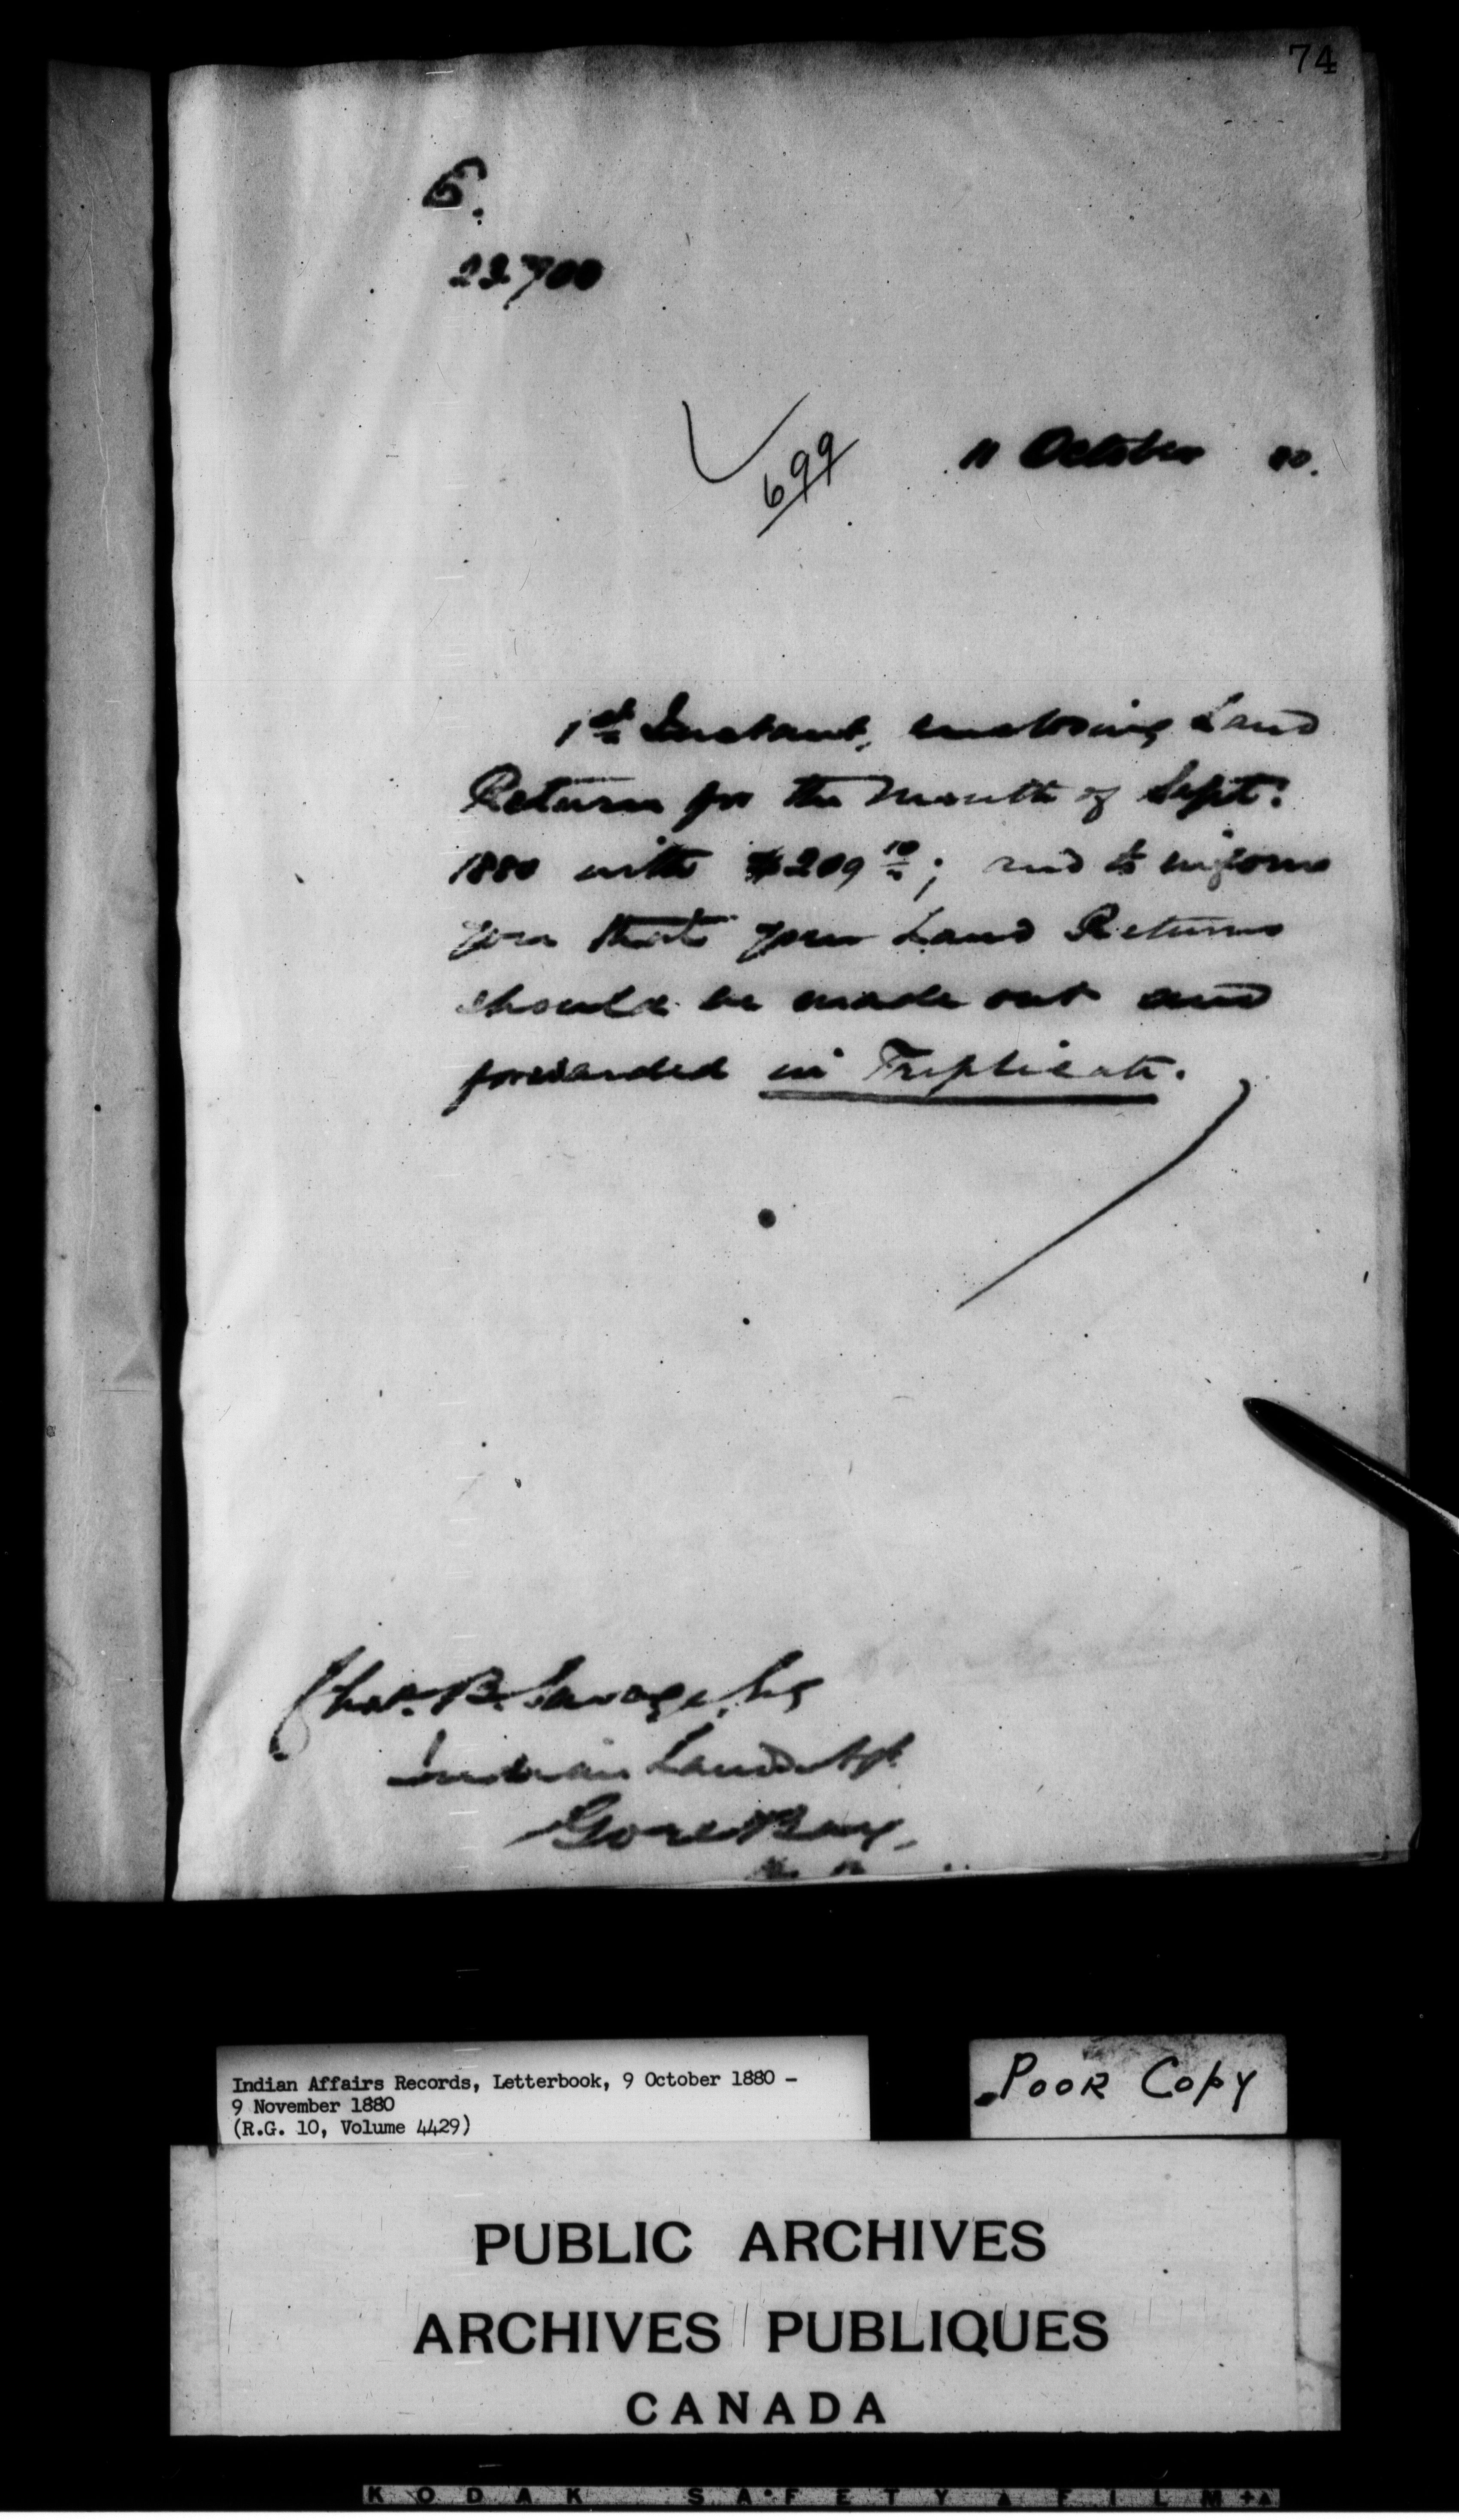 74
22700
699
11 October 80.
1st Instant, enclosing Land
Return for the Month of Sept:
1880 with $209 10; and to inform
you that your Land Returns
should be made out and
forwarded in Triplicate.
Chas. B. Savage, Esq
Indian Land Agt.
Gore Bay,
Indian Affairs Records, Letterbook, 9 October 1880 -
9 November 1880
(R.G. 10, Volume 4429)
Poor Copy
PUBLIC ARCHIVES
ARCHIVES PUBLIQUES
CANADA
KODAK SAFETY FILM